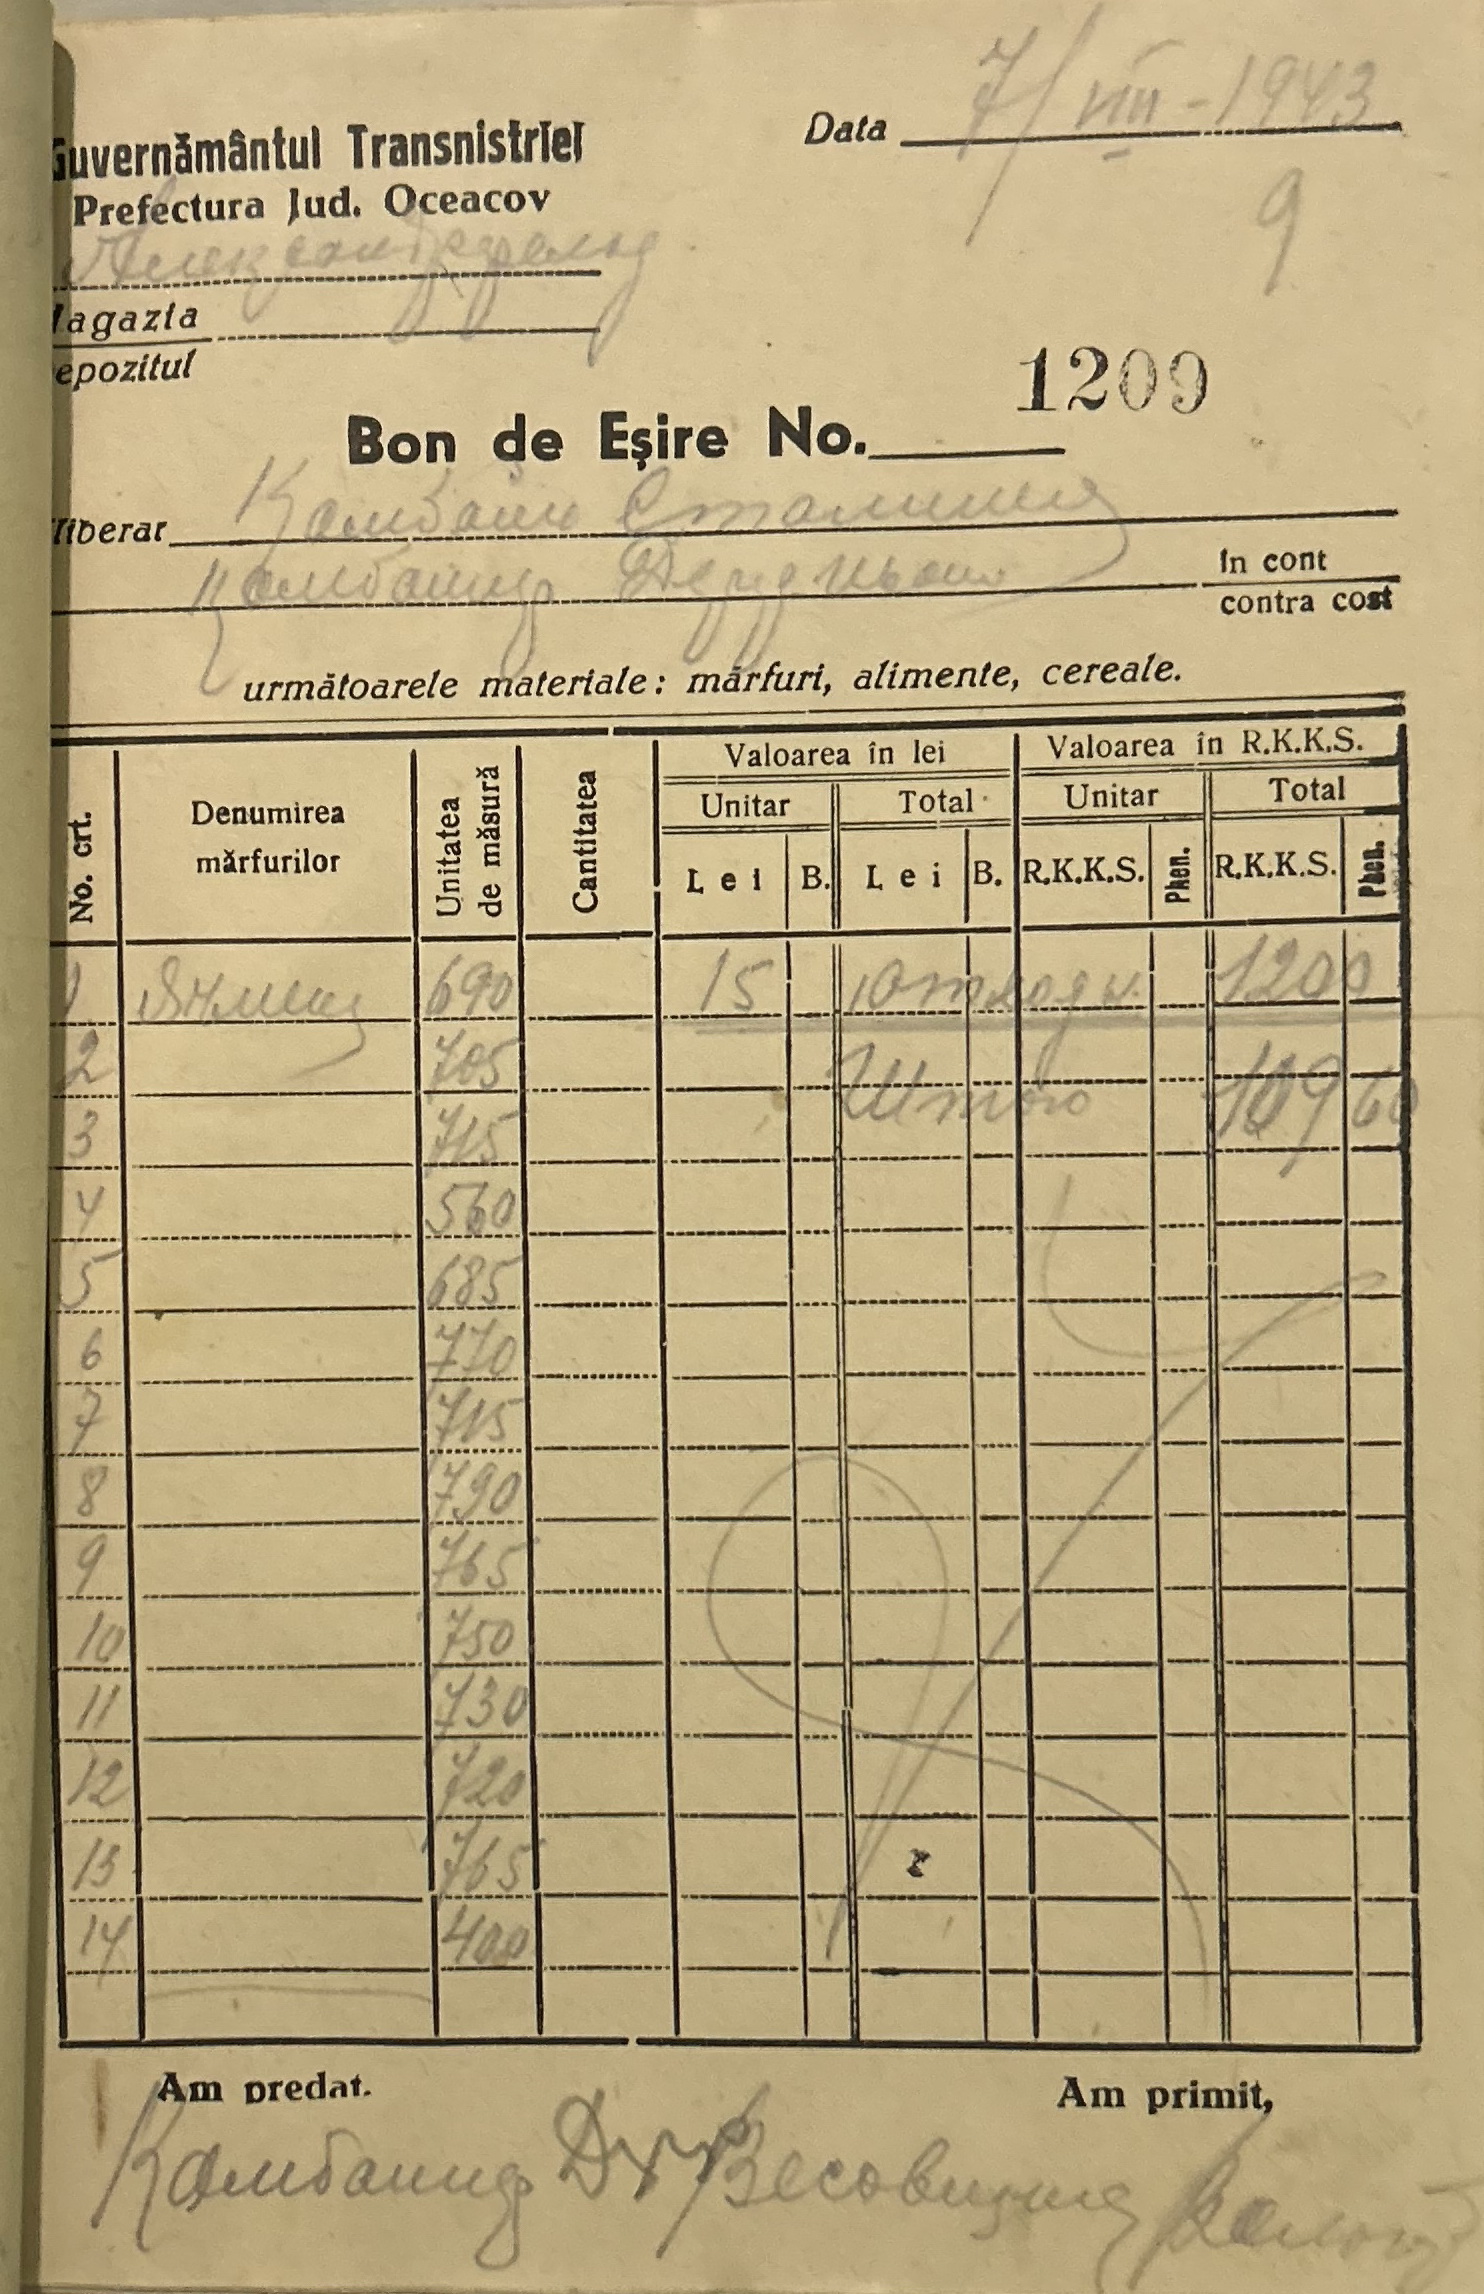 Data 7/VIII-1943
Guvernământul Transnistriei
Prefectura Jud. Oceacov
9
Александрфельд
Magazia
Depozitul
1209
Bon de Eşire No.
liberat Комбайн Сталинец
Комбайнер
în cont
contra cost
următoarele materiale: mărfuri, alimente, cereale.
No. crt. Denumirea mărfurilor Unitatea de măsură Cantitatea Valoarea în lei Valoarea în R.K.K.S.
Unitar Total Unitar Total
Lei B. Lei B. R.K.K.S. Phen. R.K.K.S. Phen.
1 Ячмень 690 15 Отходы 1200
2 705
3 715 10960
4 560
5 685
6 770
7 715
8 790
9 765
10 750
11 730
12 720
13 765
14 400
Am predat. Am primit,
Комбайнер Весовщик